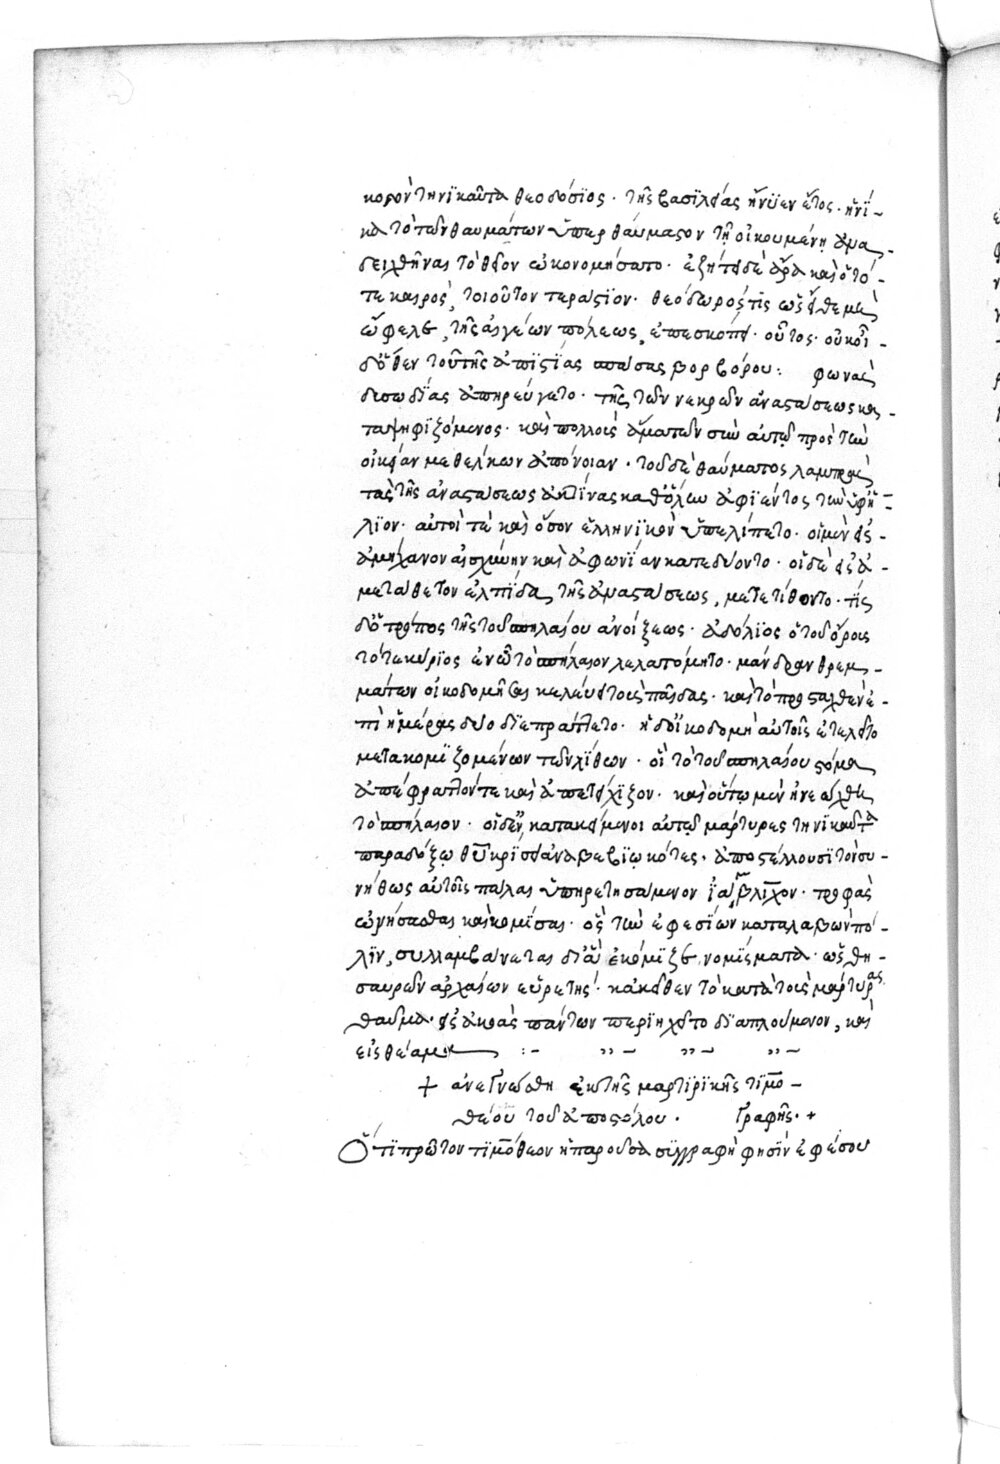 κορὸν τηνϊκαῦτα θεοδόσϊος · τῆς βασϊλείας ἤνϋεν ἔτος · ἡνΐ -
κα τὸ τῶν θαυμάτων ὕπερ θαύμαστον τῆ οἰκουμένη ἀνα -
δειχθῆναι τὸ θεῖον ὠκονομήσατο · ἐζήτει δὲ ἄρα καὶ ὁ τό -
τε καιρὸς, τοιοῦτον τεράστϊον · θεόδωρός τϊς ὡς εἴθε μὲ
ὤφελε, τῆς αἰγεών πόλεως, ἐπεσκόπει · οὗτος · οὐκ οἶ -
δ' ὅθεν τοῦ τῆς ἀπϊστϊας σπάσας βορβόρου : φωνὰς
δυσωδΐας ἀπηρεύγετο · τῆς τῶν νεκρῶν ἀναστάσεως κα -
ταψηφϊζόμενος · καὶ πολλοὺς ἀπατῶν σὺν αὐτῶ πρὸς τὴν
οἰκείαν μεθέλκων ἀπόνοιαν · τοῦ δὲ θαύματος λαμπρὰς
τὰς τῆς ἀναστάσεως ἀκτΐνας καθόλου ἀφϊέντος τὴν ὑφή -
λϊον · αὐτοί τε καὶ ὅσον ἑλληνϊκὸν ὑπελίπετο · οἱ μὲν εἰς
ἀμήχανον αἰσχύνην καὶ ἀφωνΐαν κατεδύοντο · οἱ δὲ εἰς ἀ -
μετάθετον ἐλπΐδα, τῆς ἀναστάσεως, μετετίθεντο · τίς
δ' ὁ τρόπος τῆς τοῦ σπηλαίου ἀνοίξεως · ἀδόλϊος ὁ τοῦ ὄρους
τότε κύρϊος ἐν ὧ τὸ σπήλαιον λελατόμητο · μάνδραν θρεμ -
μάτων οἰκοδομῆσαι κελεύει τοὺς παῖδας · καὶ τὸ προσταχθὲν ἐ -
πὶ ἡμέρας δυο δϊεπράττετο · ἡ δ' οἰκοδομὴ αὐτοῖς ἐτελεῖτο
μετακομϊζομένων τῶν λΐθων · οἳ τὸ τοῦ σπηλαίου στόμα
ἀπέφραττόν τε καὶ ἀπετείχϊζον · καὶ οὕτω μὲν ἠνεώχθη
τὸ σπήλαιον · οἱ δ' ἐν κατακείμενοι αὐτῶ μάρτυρες τηνϊκαῦτα
παραδόξω θεοῦ κρΐσει ἀναβεβϊωκότες · ἀποστέλλουσϊ τὸν συ -
νήθως αὐτοῖς πάλαι ὑπηρετησάμενον ϊάμβλϊχον · τροφὰς
ὠνήσασθαι καὶ κομΐσαι · ὃς τὴν ἐφεσΐων καταλαβὼν πό -
λϊν, συλλαμβάνεται δϊ' ἃ ἐκόμϊζε νομΐσματα · ὡς θη -
σαυρῶν ἀρχαίων εὑρετής · κἀκεῖθεν τὸ κατὰ τοὺς μάρτυρας
θαῦμα · εἰς ἀκοὰς πάντων περϊηχεῖτο δϊαπλούμενον, καὶ
εἰς θέαμα : - ,, - ,, - ,, -
+ ἀνεγνώσθη ἐκ τῆς μαρτϊρϊκῆς τϊμο -
θέου τοῦ ἀποστόλου · γραφῆς · +
Ὅτϊ πρῶτον τϊμόθεον ἡ παροῦσα σϋγγραφή φησϊν ἐφέσου